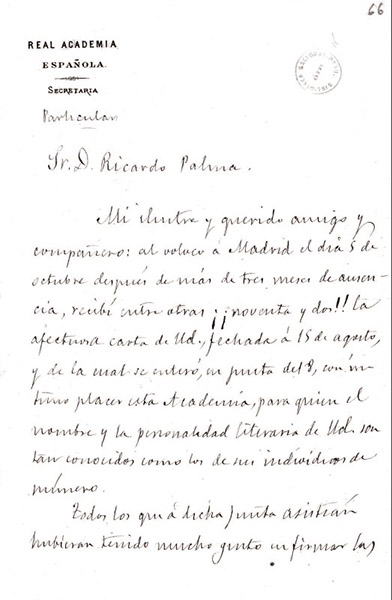 66
REAL ACADEMIA
ESPAÑOLA.
SECRETARIA
Particular
Sr. D. Ricardo Palma.
Mi ilustre y querido amigo y
compañero: al volver á Madrid el día 5 de
octubre después de más de tres meses de ausen-
cia, recibí entre otras ¡¡noventa y dos!! la
afectuosa carta de Ud., fechada á 15 de agosto,
y de la cual se enteró, en junta del 8, con ín-
timo placer esta Academia, para quien el
nombre y la personalidad literaria de Ud. son
tan conocidos como los de sus individuos de
número.
Todos los que á dicha junta asistían
hubieran tenido mucho gusto en firmar las